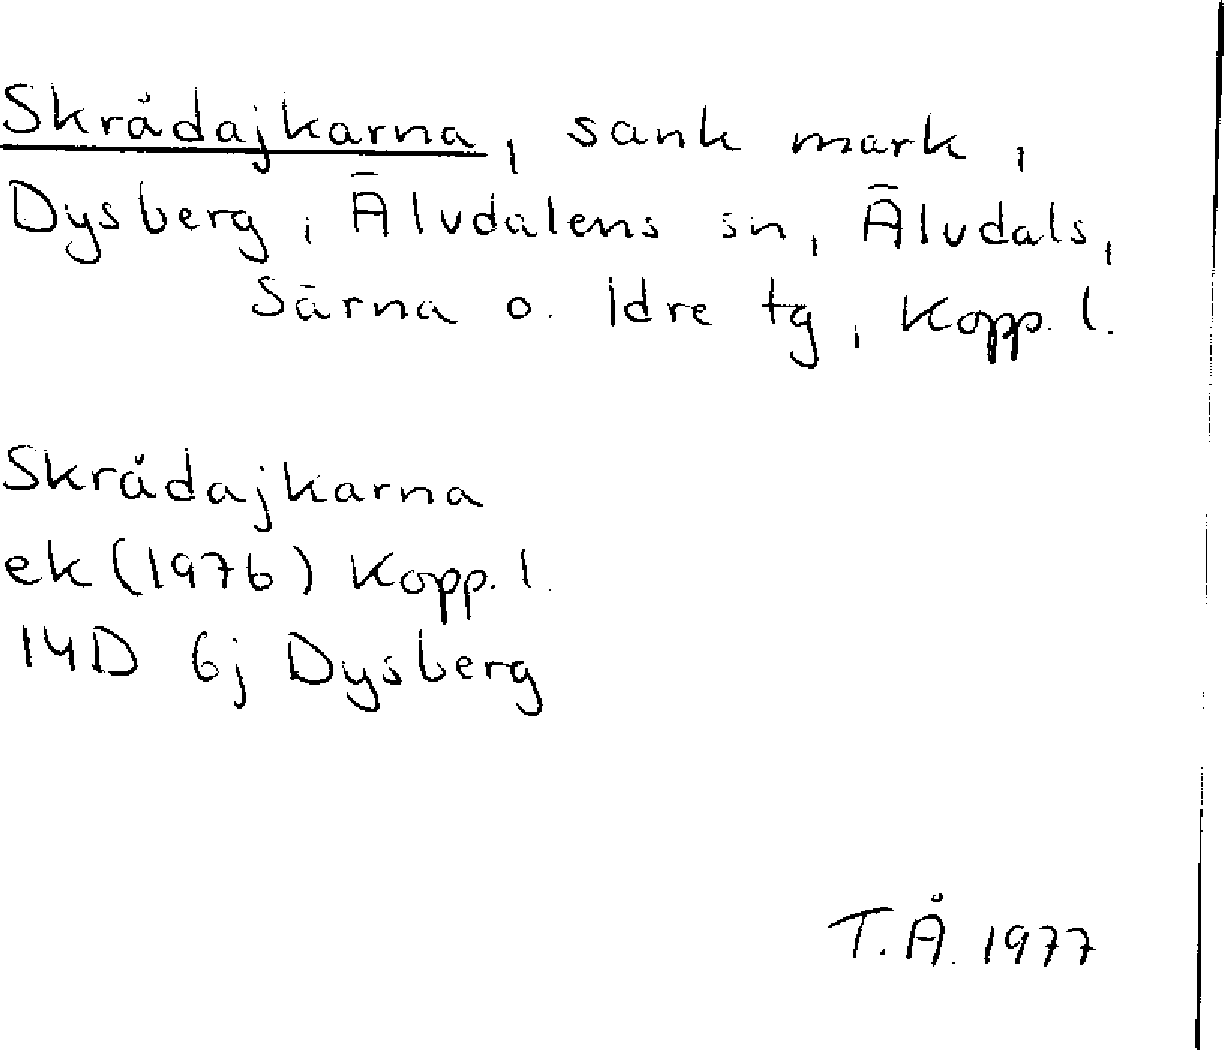 Skrådajkarna, sank mark,
Dysberg, Älvdalens sn, Älvdals,
Särna o. Idre tg, Kopp. l.
Skrådajkarna
ek (1976) Kopp. l.
14D 6j Dysberg
T.Å. 1977